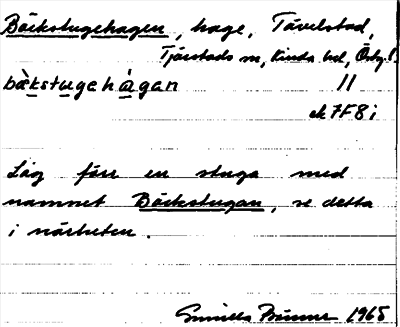 Bäckstugehagen, hage, Tävelstad,
Tjärstads sn, Kinda hd, Östg.
bàckstugehågan //
ek 7F8i
Låg förr en stuga med
namnet Bäckstugan, se detta
i närheten.
Gunilla 1965